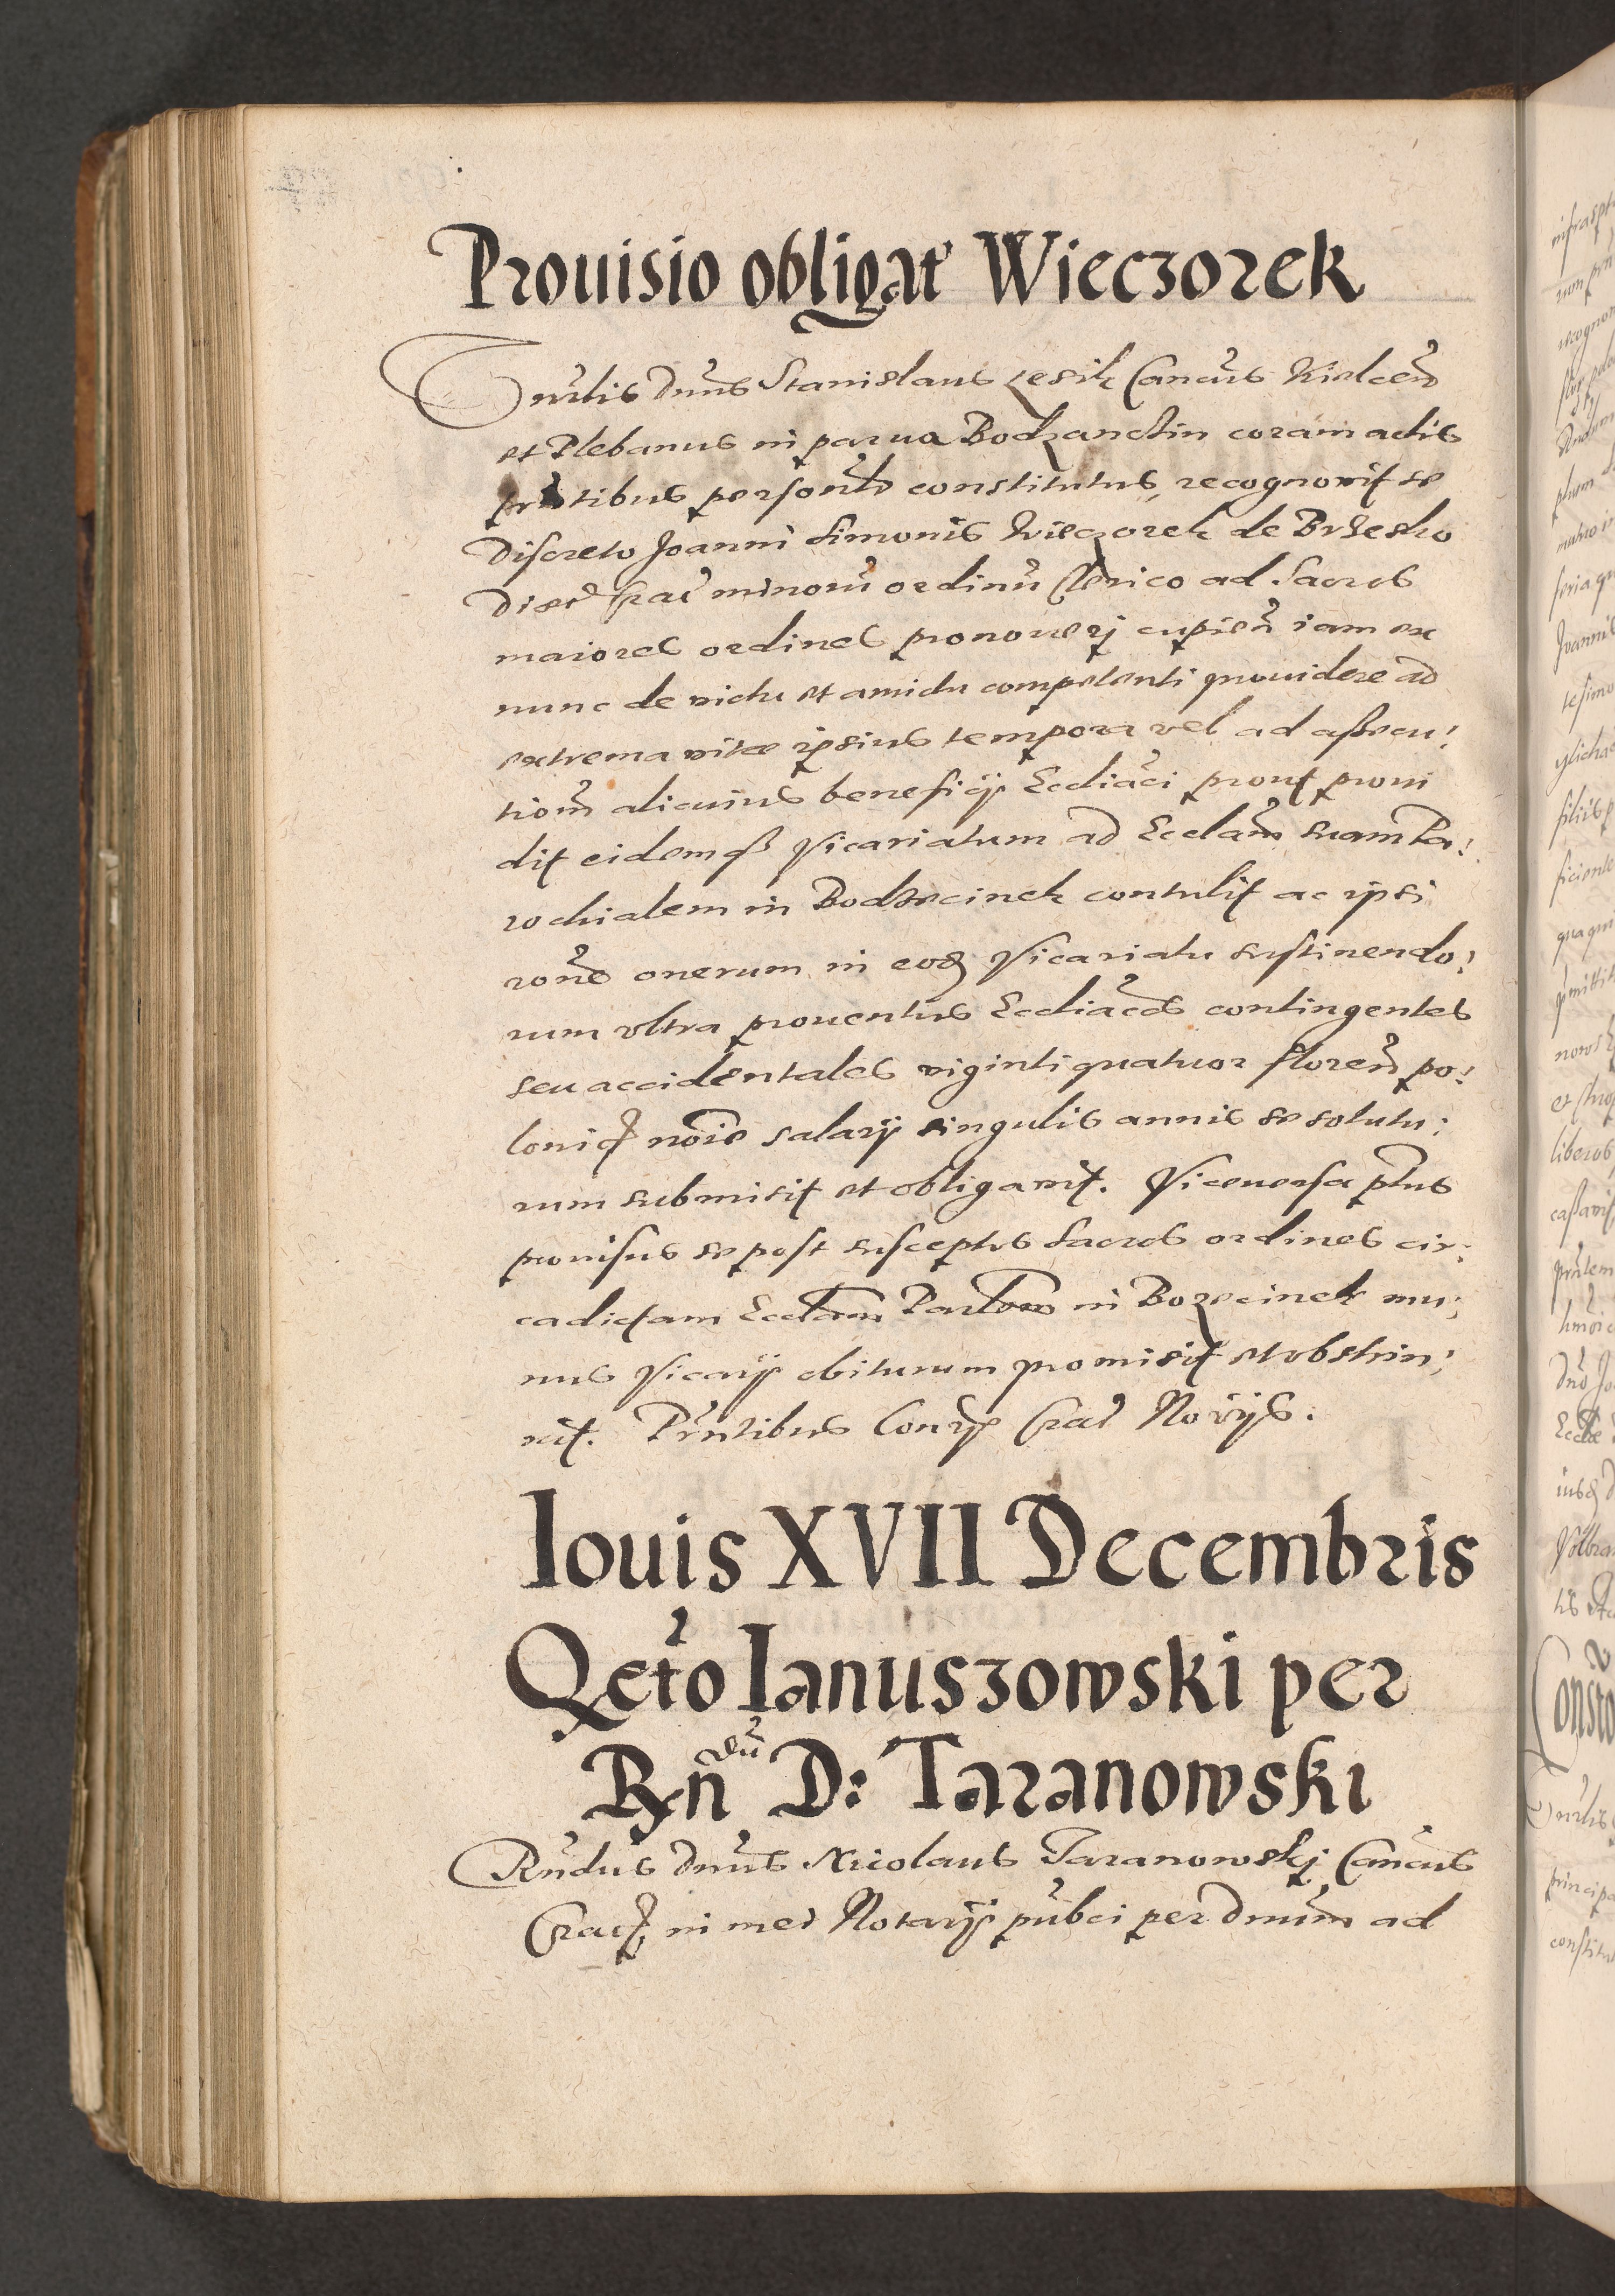 Prouisio obligat Wieczorek
Vnrlis Dnus Stanislaus Zesik Cancus Kielcen
et Plebanus in parua Bodzanctin coram actis
prntibus personlr constitutus, recognouit se
Discreto Joanni Simonis Wieczorek de Brzesko
Dioec Crac minoru ordinu Clerico ad Sacros
maiores ordines promoueri cupien iam ex
nunc de victu et amictu competenti prouidere ad
extrema vitae ipsius tempora vel ad assecu:
tiom alicuius beneficij Eccliaci prout proui
dit eidemqz Vicariatum ad Ecclam suam Pa:
rochialem in Bodzecinek contulit ac ipsi
rone onerum in eod Vicariatu sustinendo:
rum vltra prouentus Eccliacos contingentes
seu accidentales viginti quatuor floren po:
lonic noie salarij singulis annis se solutu:
rum submisit et obligauit. Viceuersa ptus
prouisus se post susceptos Sacros ordines cir:
ca dictam Ecclam Parlem in Bozecinek mu:
nus Vicarij obiturum promisit et obstrin:
xit. Prntibus Consry Crac Norijs.
Iouis XVII Decembris
Qcto Ianuszowski per
Rndu D: Taranowski
Rndus Dnus Nicolaus Taranowskj Cancus
Crac, in mei Notarij publci per Dnum ad